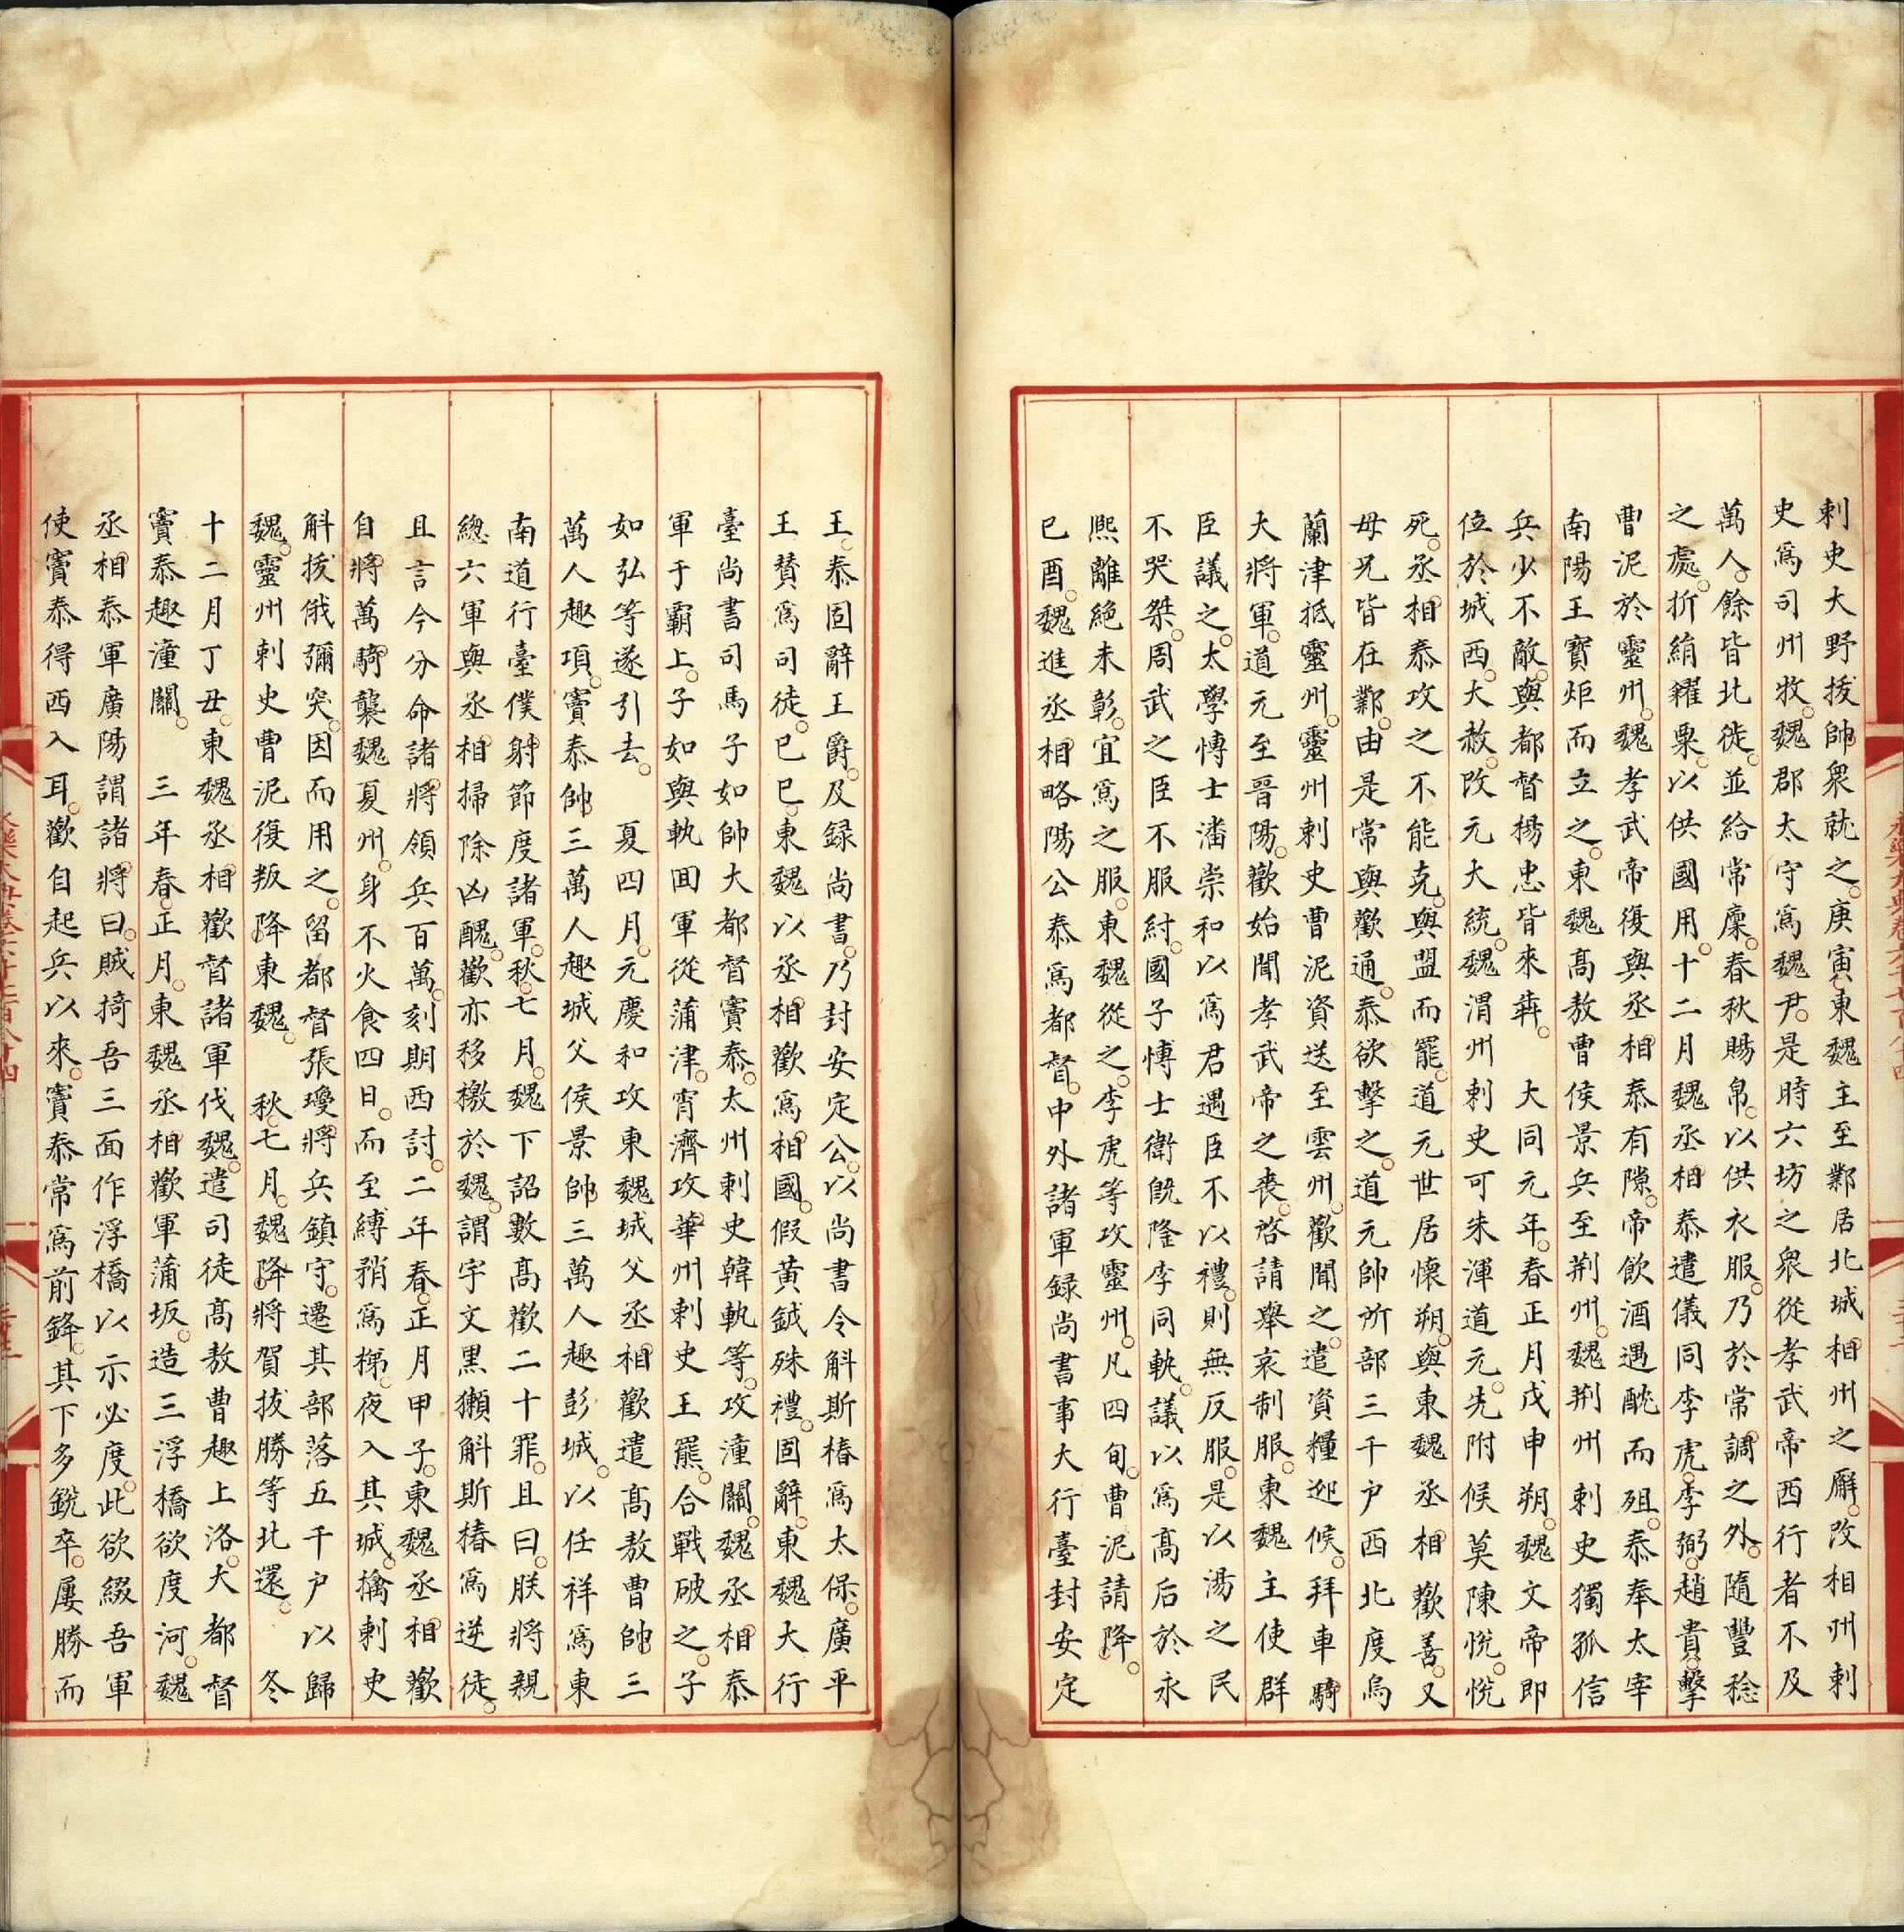 刺史大野拔帥衆就之庚寅東魏主至鄴居北城相州之廨改相州刺
史爲司州牧魏郡太守爲魏尹是時六坊之衆從孝武帝西行者不及
萬人餘皆北徙並給常廩春秋賜帛以供衣服乃於常調之外隨豐稔
之處折絹糴粟以供國用十二月魏丞相泰遣儀同李虎李弼趙貴擊
曹泥於靈州魏孝武帝復與丞相泰有隙帝飲酒遇酖而殂泰奉太宰
南陽王寳炬而立之東魏高敖曹侯景兵至荆州魏荆州刺史獨孤信
兵少不敵與都督楊忠皆來犇　大同元年春正月戊申朔魏文帝即
位於城西大赦改元大統魏渭州刺史可朱渾道元先附候莫陳悅悅
死丞相泰攻之不能克與盟而罷道元世居懷朔與東魏丞相歡善又
母兄皆在鄴由是常與歡通泰欲擊之道元帥所部三千户西北度烏
蘭津袛靈州靈州刺史曹泥資送至雲州歡聞之遣資糧迎候拜車騎
大將軍道元至晉陽歡始聞孝武帝之喪啓請舉哀制服東魏主使群
臣議之太學博士潘崇和以爲君遇臣不以禮則無反服是以湯之民
不哭桀周武之臣不服紂國子博士衛旣隆李同軌議以爲高后於永
熈離絶未彰宜爲之服東魏從之李虎等攻靈州凡四旬曹泥請降
已酉魏進丞相略陽公泰爲都督中外諸軍録尚書事大行臺封安定
王泰固辭王爵及録尚書乃封安定公以尚書令斛斯椿爲太保廣平
王賛爲司徒已巳東魏以丞相歡爲相國假黄鉞殊禮固辭東魏大行
臺尚書司馬子如帥大都督竇泰太州刺史韓軌等攻潼關魏丞相泰
軍于霸上子如與軌回軍從蒲津宵濟攻華州刺史王羆合戰破之子
如弘等遂引去　夏四月元慶和攻東魏城父丞相歡遣高敖曹帥三
萬人趣項竇泰帥三萬人趣城父侯景帥三萬人趣彭城以任祥爲東
南道行臺僕射節度諸軍秋七月魏下詔數高歡二十罪且曰朕將親
總六軍與丞相掃除凶醜歡亦移檄於魏謂宇文黒獺斛斯椿爲逆徒
且言今分命諸將領兵百萬刻期西討二年春正月甲子東魏丞相歡
自將萬騎襲魏夏州身不火食四日而至縛矟爲梯夜入其城擒刺史
斛拔俄彌突因而用之留都督張瓊將兵鎮守遷其部落五千户以歸
魏靈州刺史曹泥復叛降東魏　秋七月魏降將賀拔勝等北還　冬
十二月丁丑東魏丞相歡督諸軍伐魏遣司徒高敖曹趣上洛大都督
竇泰趣潼關　三年春正月東魏丞相歡軍蒲坂造三浮橋欲度河魏
丞相泰軍廣陽謂諸將曰賊掎吾三面作浮橋以示必度此欲綴吾軍
使竇泰得西入耳歡自起兵以來竇泰常爲前鋒其下多銳卒屢勝而